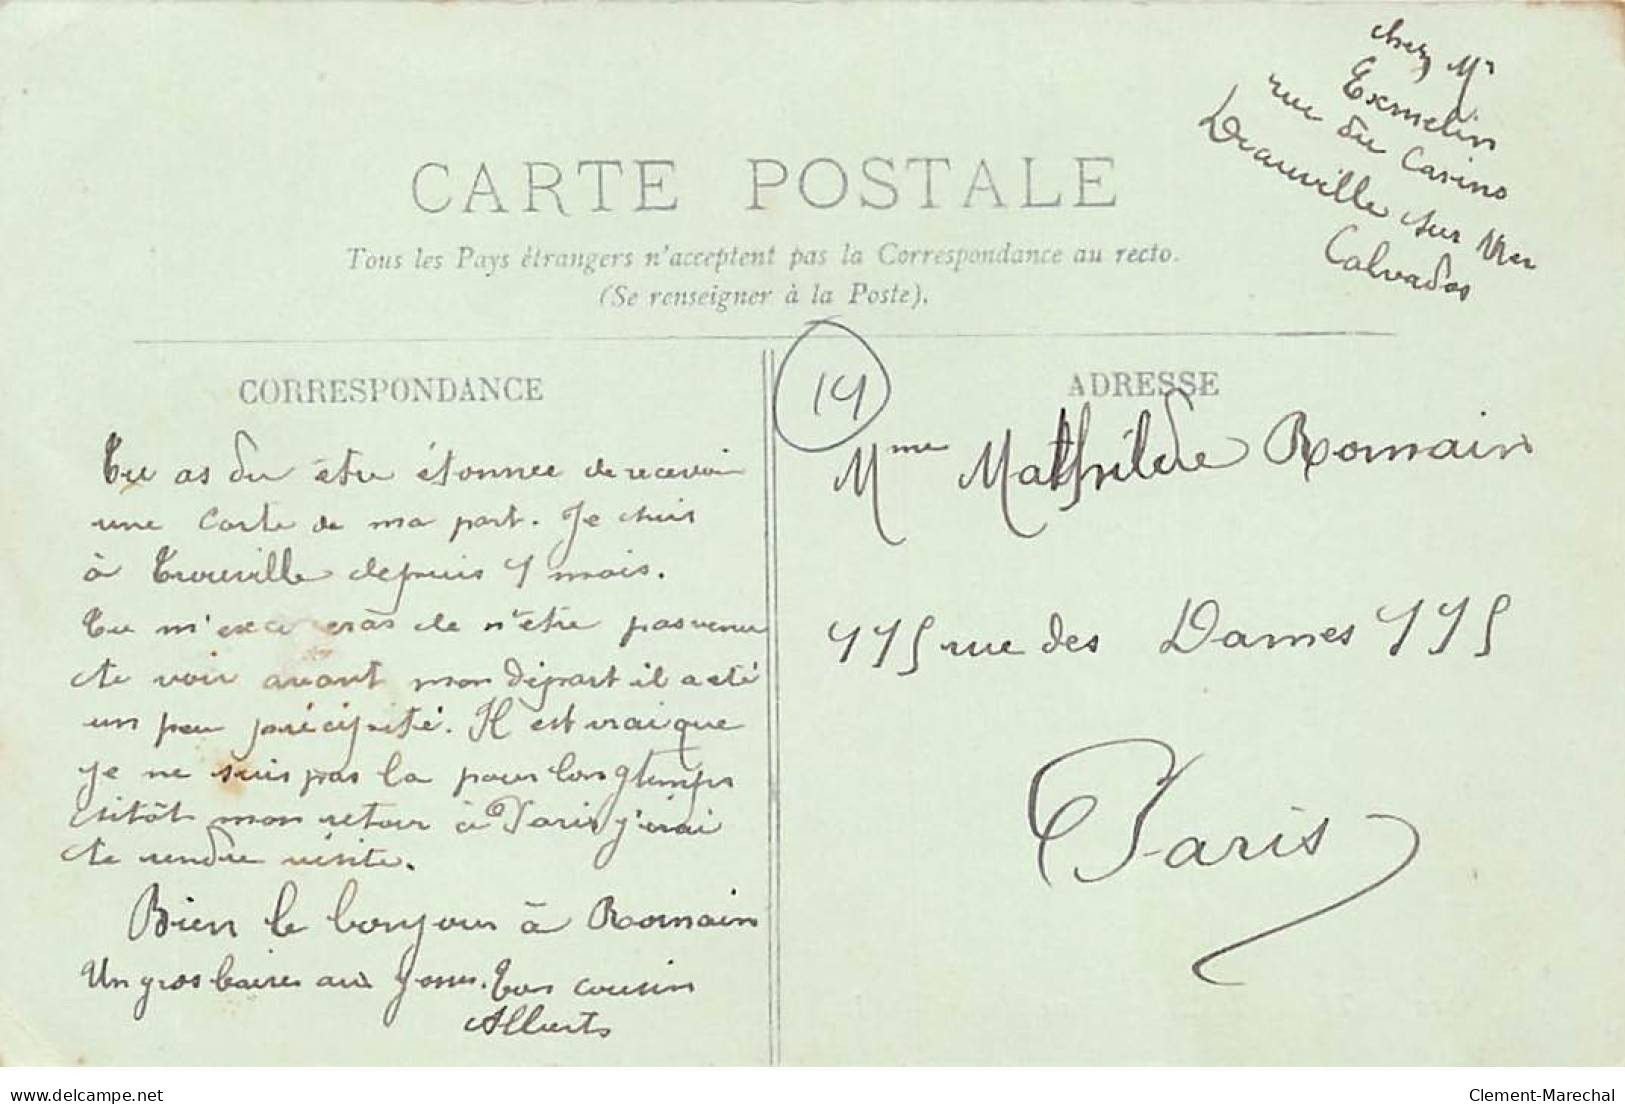 chez Mr
Exmelin
rue du Casino
Deauville sur Mer
Calvados
CARTE POSTALE
Tous les Pays étrangers n'acceptent pas la Correspondance au recto.
(Se renseigner à la Poste).
CORRESPONDANCE
Tu as du être étonnée de recevoir
une carte de ma part. Je suis
à Trouville depuis 1 mois.
Tu m'excuseras de n'être pas venu
te voir avant mon départ il a été
un peu précipité. Il est vrai que
je ne suis pas la pour longtemps
sitôt mon retour à Paris j'irai
te rendre visite.
Bien le bonjour à Romain
Un gros baiser aux gosses. Ton cousin
Alberto
14
ADRESSE
Mme Mathilde Romain
115 rue des Dames 115
Paris
delcampe.net
Clement-Marechal